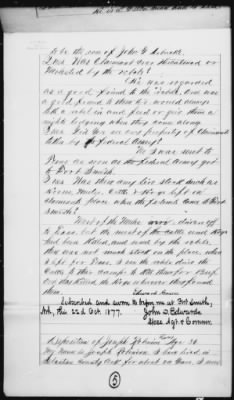 to be the son of John G
Ques Was Claimant ever threatened or
molested by the rebels?
He was regarded
as a good friend to the rebels. One was
a good friend to them he would always
let a rebel in and feed or give them a
nights lodging when they came along
Ques Did You see any property of Claimants
taken by the Federal Army?
No I was sent to
Texas as soon as the Federal Army got
to Fort Smith.
Ques Was there any live stock such as
Horses, Mules, Cattle & Hogs left on
Claimants place when the Federals came to Fort
Smith?
Most of the Mules were driven off
to Texas, but the most of the Cattle and Hogs
had been killed, and used by the rebels,
there was not much stock on the place when
I left for Texas. I saw the rebels drive the
Cattle to their camps to kill them for Beef
and the Hogs wherever they found
them.
Edward
Subscribed and sworn to before me at Fort Smith,
Ark, this 22d Oct. 1877.
John D. Edwards
Spec. Agt. & Commr.
Deposition of Joseph Age 36
My name is Joseph I have lived in
Sebastian County Ark for about 20 Years. I was
5